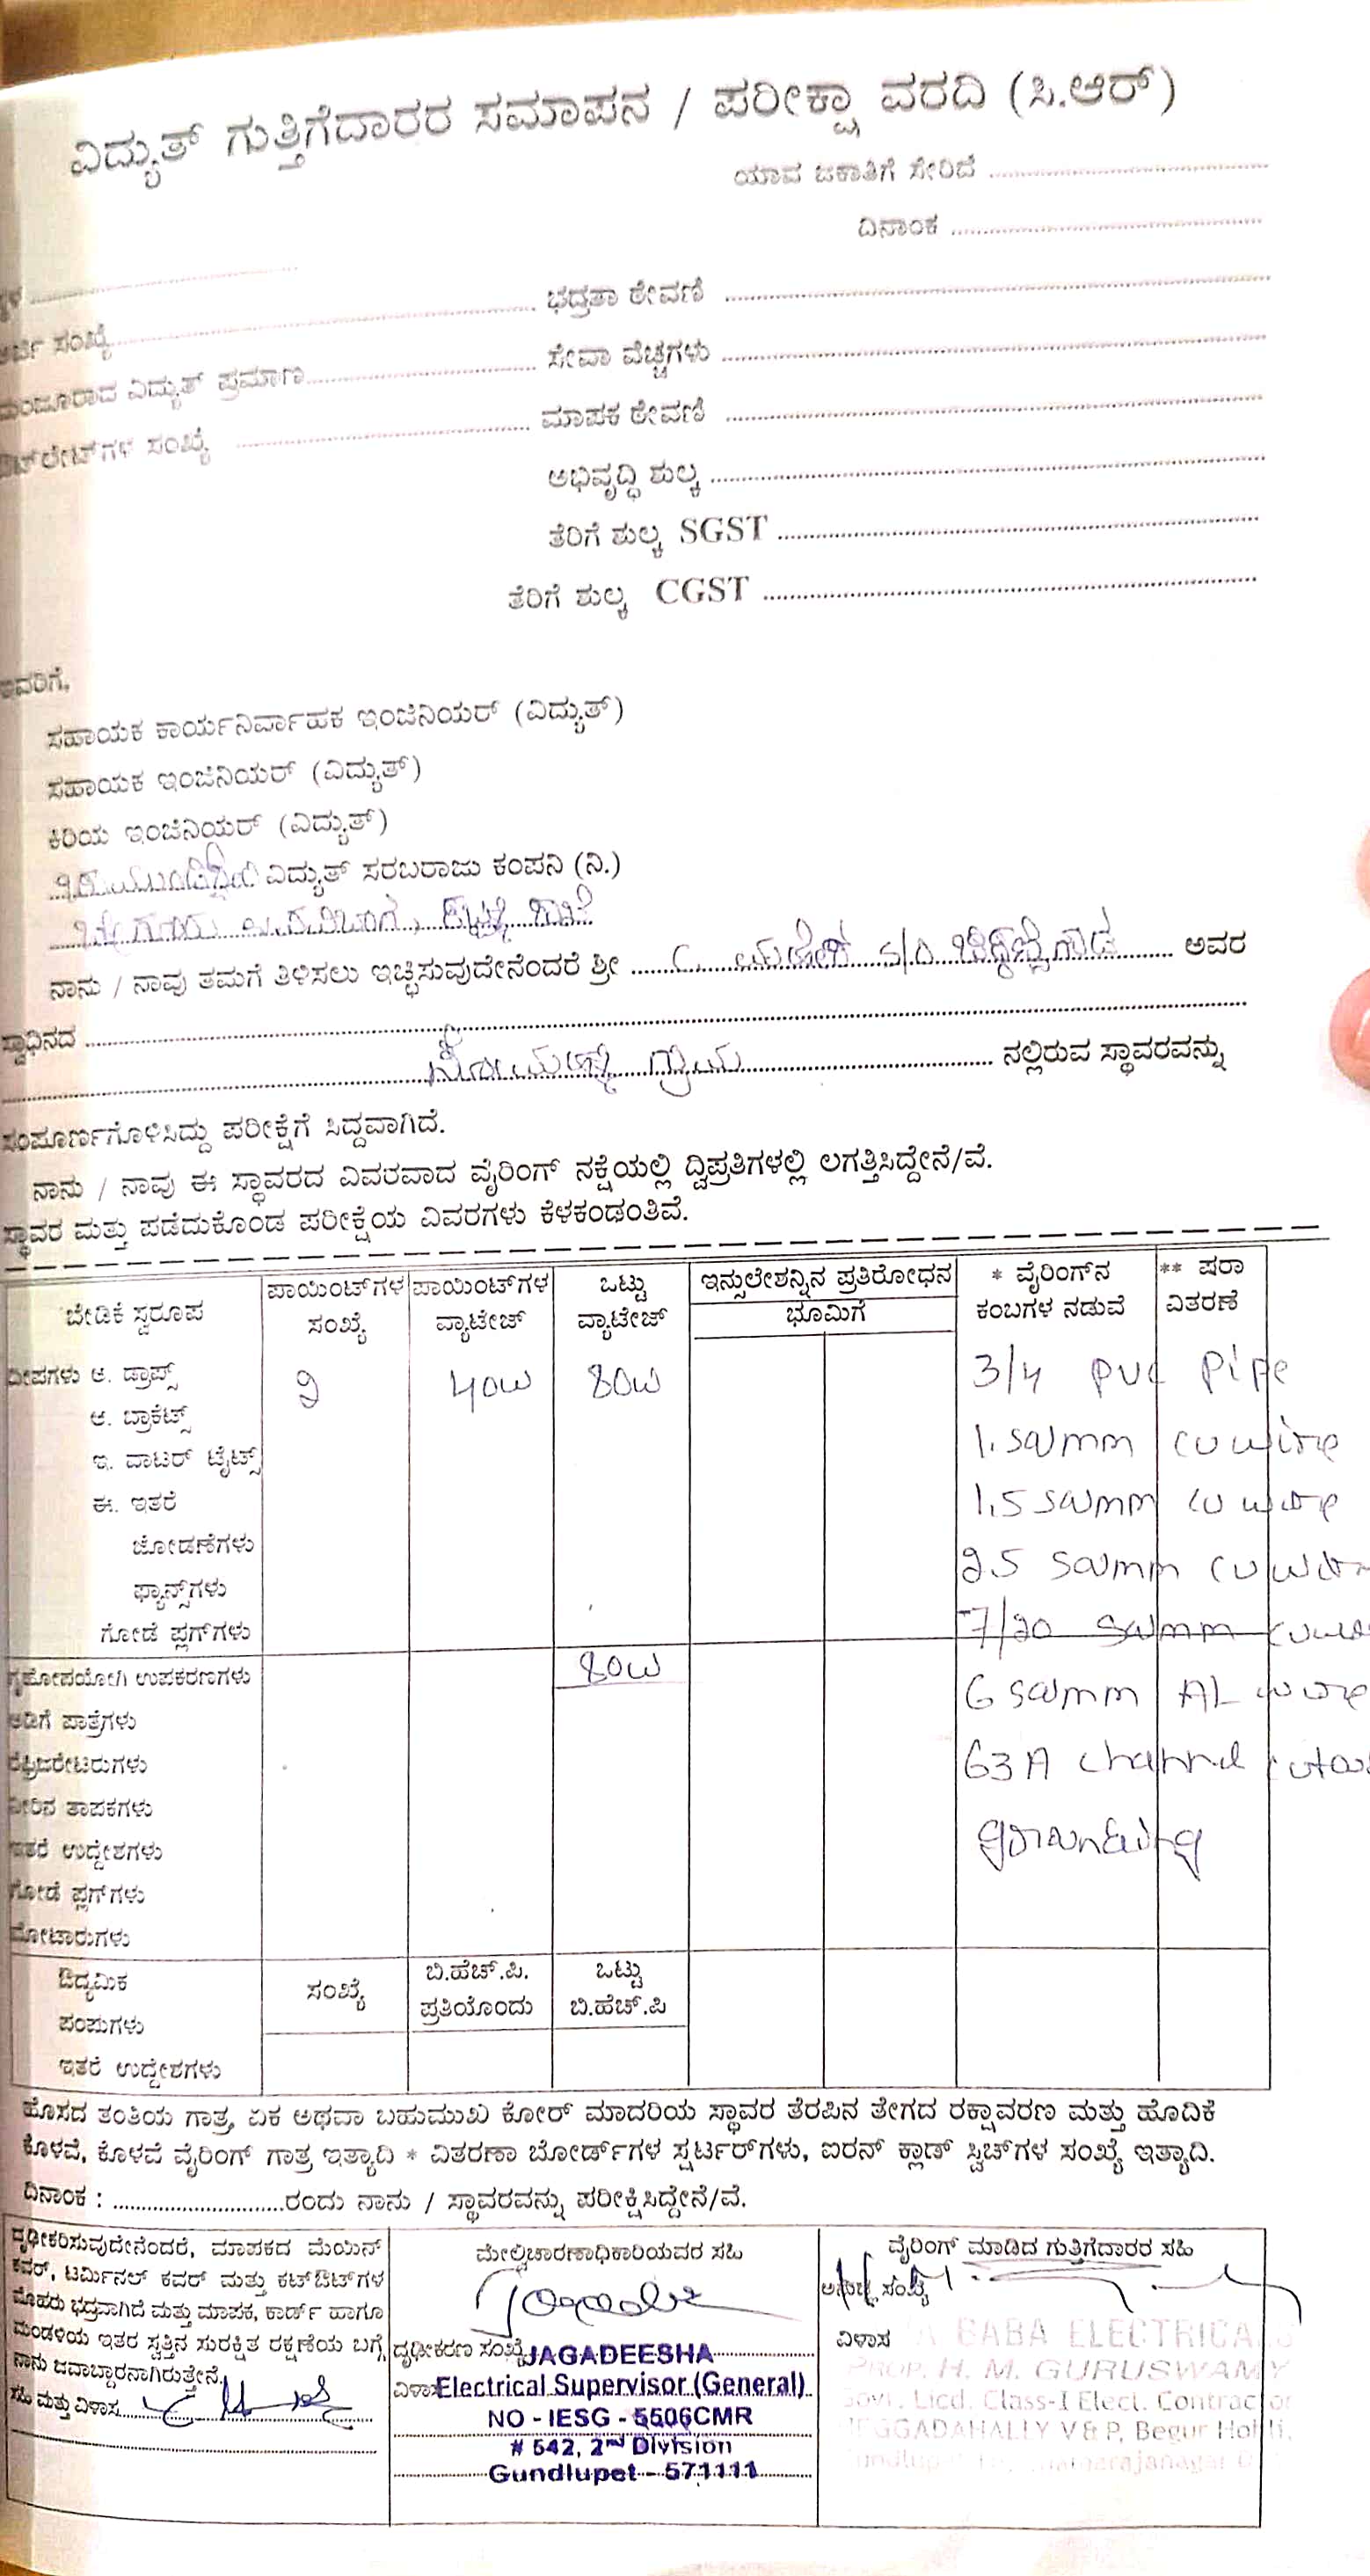 ವಿದ್ಯುತ್ ಗುತ್ತಿಗೆದಾರರ ಸಮಾಪನ / ಪರೀಕ್ಷಾ ವರದಿ (ಸಿ.ಆರ್)
ಯಾವ ಜಕಾತಿಗೆ ಸೇರಿದೆ
ದಿನಾಂಕ
ಸಂಖ್ಯೆ ಭದ್ರತಾ ಠೇವಣಿ
ವಿದ್ಯುತ್ ಪ್ರಮಾಣ ಸೇವಾ ವೆಚ್ಚಗಳು
ಸಂಖ್ಯೆ ಮಾಪಕ ಠೇವಣಿ
ಅಭಿವೃದ್ಧಿ ಶುಲ್ಕ
ತೆರಿಗೆ ಶುಲ್ಕ SGST
ತೆರಿಗೆ ಶುಲ್ಕ CGST
ಅವರಿಗೆ,
ಸಹಾಯಕ ಕಾರ್ಯನಿರ್ವಾಹಕ ಇಂಜಿನಿಯರ್ (ವಿದ್ಯುತ್)
ಸಹಾಯಕ ಇಂಜಿನಿಯರ್ (ವಿದ್ಯುತ್)
ಕಿರಿಯ ಇಂಜಿನಿಯರ್ (ವಿದ್ಯುತ್)
ವಿದ್ಯುತ್ ಸರಬರಾಜು ಕಂಪನಿ (ನಿ.)
ನಾನು / ನಾವು ತಮಗೆ ತಿಳಿಸಲು ಇಚ್ಛಿಸುವುದೇನೆಂದರೆ ಶ್ರೀ S/O ಅವರ
ಸ್ವಾಧಿನದ
ಗ್ರಾಮ ನಲ್ಲಿರುವ ಸ್ಥಾವರವನ್ನು
ಸಂಪೂರ್ಣಗೊಳಿಸಿದ್ದು ಪರೀಕ್ಷೆಗೆ ಸಿದ್ದವಾಗಿದೆ.
ನಾನು / ನಾವು ಈ ಸ್ಥಾವರದ ವಿವರವಾದ ವೈರಿಂಗ್ ನಕ್ಷೆಯಲ್ಲಿ ದ್ವಿಪ್ರತಿಗಳಲ್ಲಿ ಲಗತ್ತಿಸಿದ್ದೇನೆ/ವೆ.
ಸ್ಥಾವರ ಮತ್ತು ಪಡೆದುಕೊಂಡ ಪರೀಕ್ಷೆಯ ವಿವರಗಳು ಕೆಳಕಂಡಂತಿವೆ.
ಬೇಡಿಕೆ ಸ್ವರೂಪ ಪಾಯಿಂಟ್‌ಗಳ ಸಂಖ್ಯೆ ಪಾಯಿಂಟ್‌ಗಳ ವ್ಯಾಟೇಜ್ ಒಟ್ಟು ವ್ಯಾಟೇಜ್ ಇನ್ಸುಲೇಶನ್ನಿನ ಪ್ರತಿರೋಧನ ಭೂಮಿಗೆ * ವೈರಿಂಗ್‌ನ ಕಂಬಗಳ ನಡುವೆ ** ಷರಾ ವಿತರಣೆ
ದೀಪಗಳು ಅ. ಡ್ರಾಪ್ಸ್ 2 40W 80W 3/4 PVC Pipe
ಆ. ಬ್ರಾಕೆಟ್ಸ್ 1. Sqmm CU wire
ಇ. ವಾಟರ್ ಟೈಟ್ಸ್
ಈ. ಇತರೆ 1.5 Sqmm CU wire
ಜೋಡಣೆಗಳು
ಫ್ಯಾನ್ಸ್‌ಗಳು 2.5 Sqmm CU
ಗೋಡೆ ಪ್ಲಗ್‌ಗಳು 7/20 Sqmm
ಗೃಹೋಪಯೋಗಿ ಉಪಕರಣಗಳು 80W 6 Sqmm AL wire
ಅಡಿಗೆ ಪಾತ್ರೆಗಳು
ರೆಫ್ರಿಜರೇಟರುಗಳು 63A channel
ನೀರಿನ ತಾಪಕಗಳು
ಇತರೆ ಉದ್ದೇಶಗಳು grounding
ಗೋಡೆ ಪ್ಲಗ್‌ಗಳು
ಮೋಟಾರುಗಳು
ಔದ್ಯಮಿಕ ಸಂಖ್ಯೆ ಬಿ.ಹೆಚ್.ಪಿ. ಪ್ರತಿಯೊಂದು ಒಟ್ಟು ಬಿ.ಹೆಚ್.ಪಿ
ಪಂಪುಗಳು
ಇತರೆ ಉದ್ದೇಶಗಳು
ಹೊಸದ ತಂತಿಯ ಗಾತ್ರ, ಏಕ ಅಥವಾ ಬಹುಮುಖ ಕೋರ್ ಮಾದರಿಯ ಸ್ಥಾವರ ತೆರಪಿನ ತೇಗದ ರಕ್ಷಾವರಣ ಮತ್ತು ಹೊದಿಕೆ
ಕೊಳವೆ, ಕೊಳವೆ ವೈರಿಂಗ್ ಗಾತ್ರ ಇತ್ಯಾದಿ * ವಿತರಣಾ ಬೋರ್ಡ್‌ಗಳ ಸ್ಟರ್ಟರ್‌ಗಳು, ಐರನ್ ಕ್ಲಾಡ್ ಸ್ವಿಚ್‌ಗಳ ಸಂಖ್ಯೆ ಇತ್ಯಾದಿ.
ದಿನಾಂಕ : ರಂದು ನಾನು / ಸ್ಥಾವರವನ್ನು ಪರೀಕ್ಷಿಸಿದ್ದೇನೆ/ವೆ.
ದೃಢೀಕರಿಸುವುದೇನೆಂದರೆ, ಮಾಪಕದ ಮೆಯಿನ್
ಕವರ್, ಟರ್ಮಿನಲ್ ಕವರ್ ಮತ್ತು ಕಟ್‌ಔಟ್‌ಗಳ
ಮೊಹರು ಭದ್ರವಾಗಿದೆ ಮತ್ತು ಮಾಪಕ, ಕಾರ್ಡ್ ಹಾಗೂ
ಮಂಡಳಿಯ ಇತರ ಸ್ವತ್ತಿನ ಸುರಕ್ಷಿತ ರಕ್ಷಣೆಯ ಬಗ್ಗೆ
ನಾನು ಜವಾಬ್ದಾರನಾಗಿರುತ್ತೇನೆ.
ಸಹಿ ಮತ್ತು ವಿಳಾಸ
ಮೇಲ್ವಿಚಾರಣಾಧಿಕಾರಿಯವರ ಸಹಿ
ದೃಢೀಕರಣ ಸಂಖ್ಯೆ JAGADEESHA
ವಿಳಾಸ Electrical Supervisor (General)
NO - IESG - 5506CMR
# 542, 2nd Division
Gundlupet - 571111
ವೈರಿಂಗ್ ಮಾಡಿದ ಗುತ್ತಿಗೆದಾರರ ಸಹಿ
ಸಂಖ್ಯೆ
ವಿಳಾಸ BABA ELECTRICA
PROP. H. M. GURUSWAMY
Govt. Licd. Class-I Elect. Contractor
V & P, Begur Hobli,